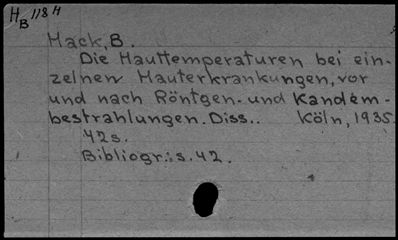 H
B 118 H
Hack, B.
Die Hauttemperaturen bei ein-
zelnen Hauterkrankungen, vor
und nach Röntgen- und Kandem-
bestrahlungen. Diss.. Köln, 1935.
42s.
Bibliogr.: s. 42.